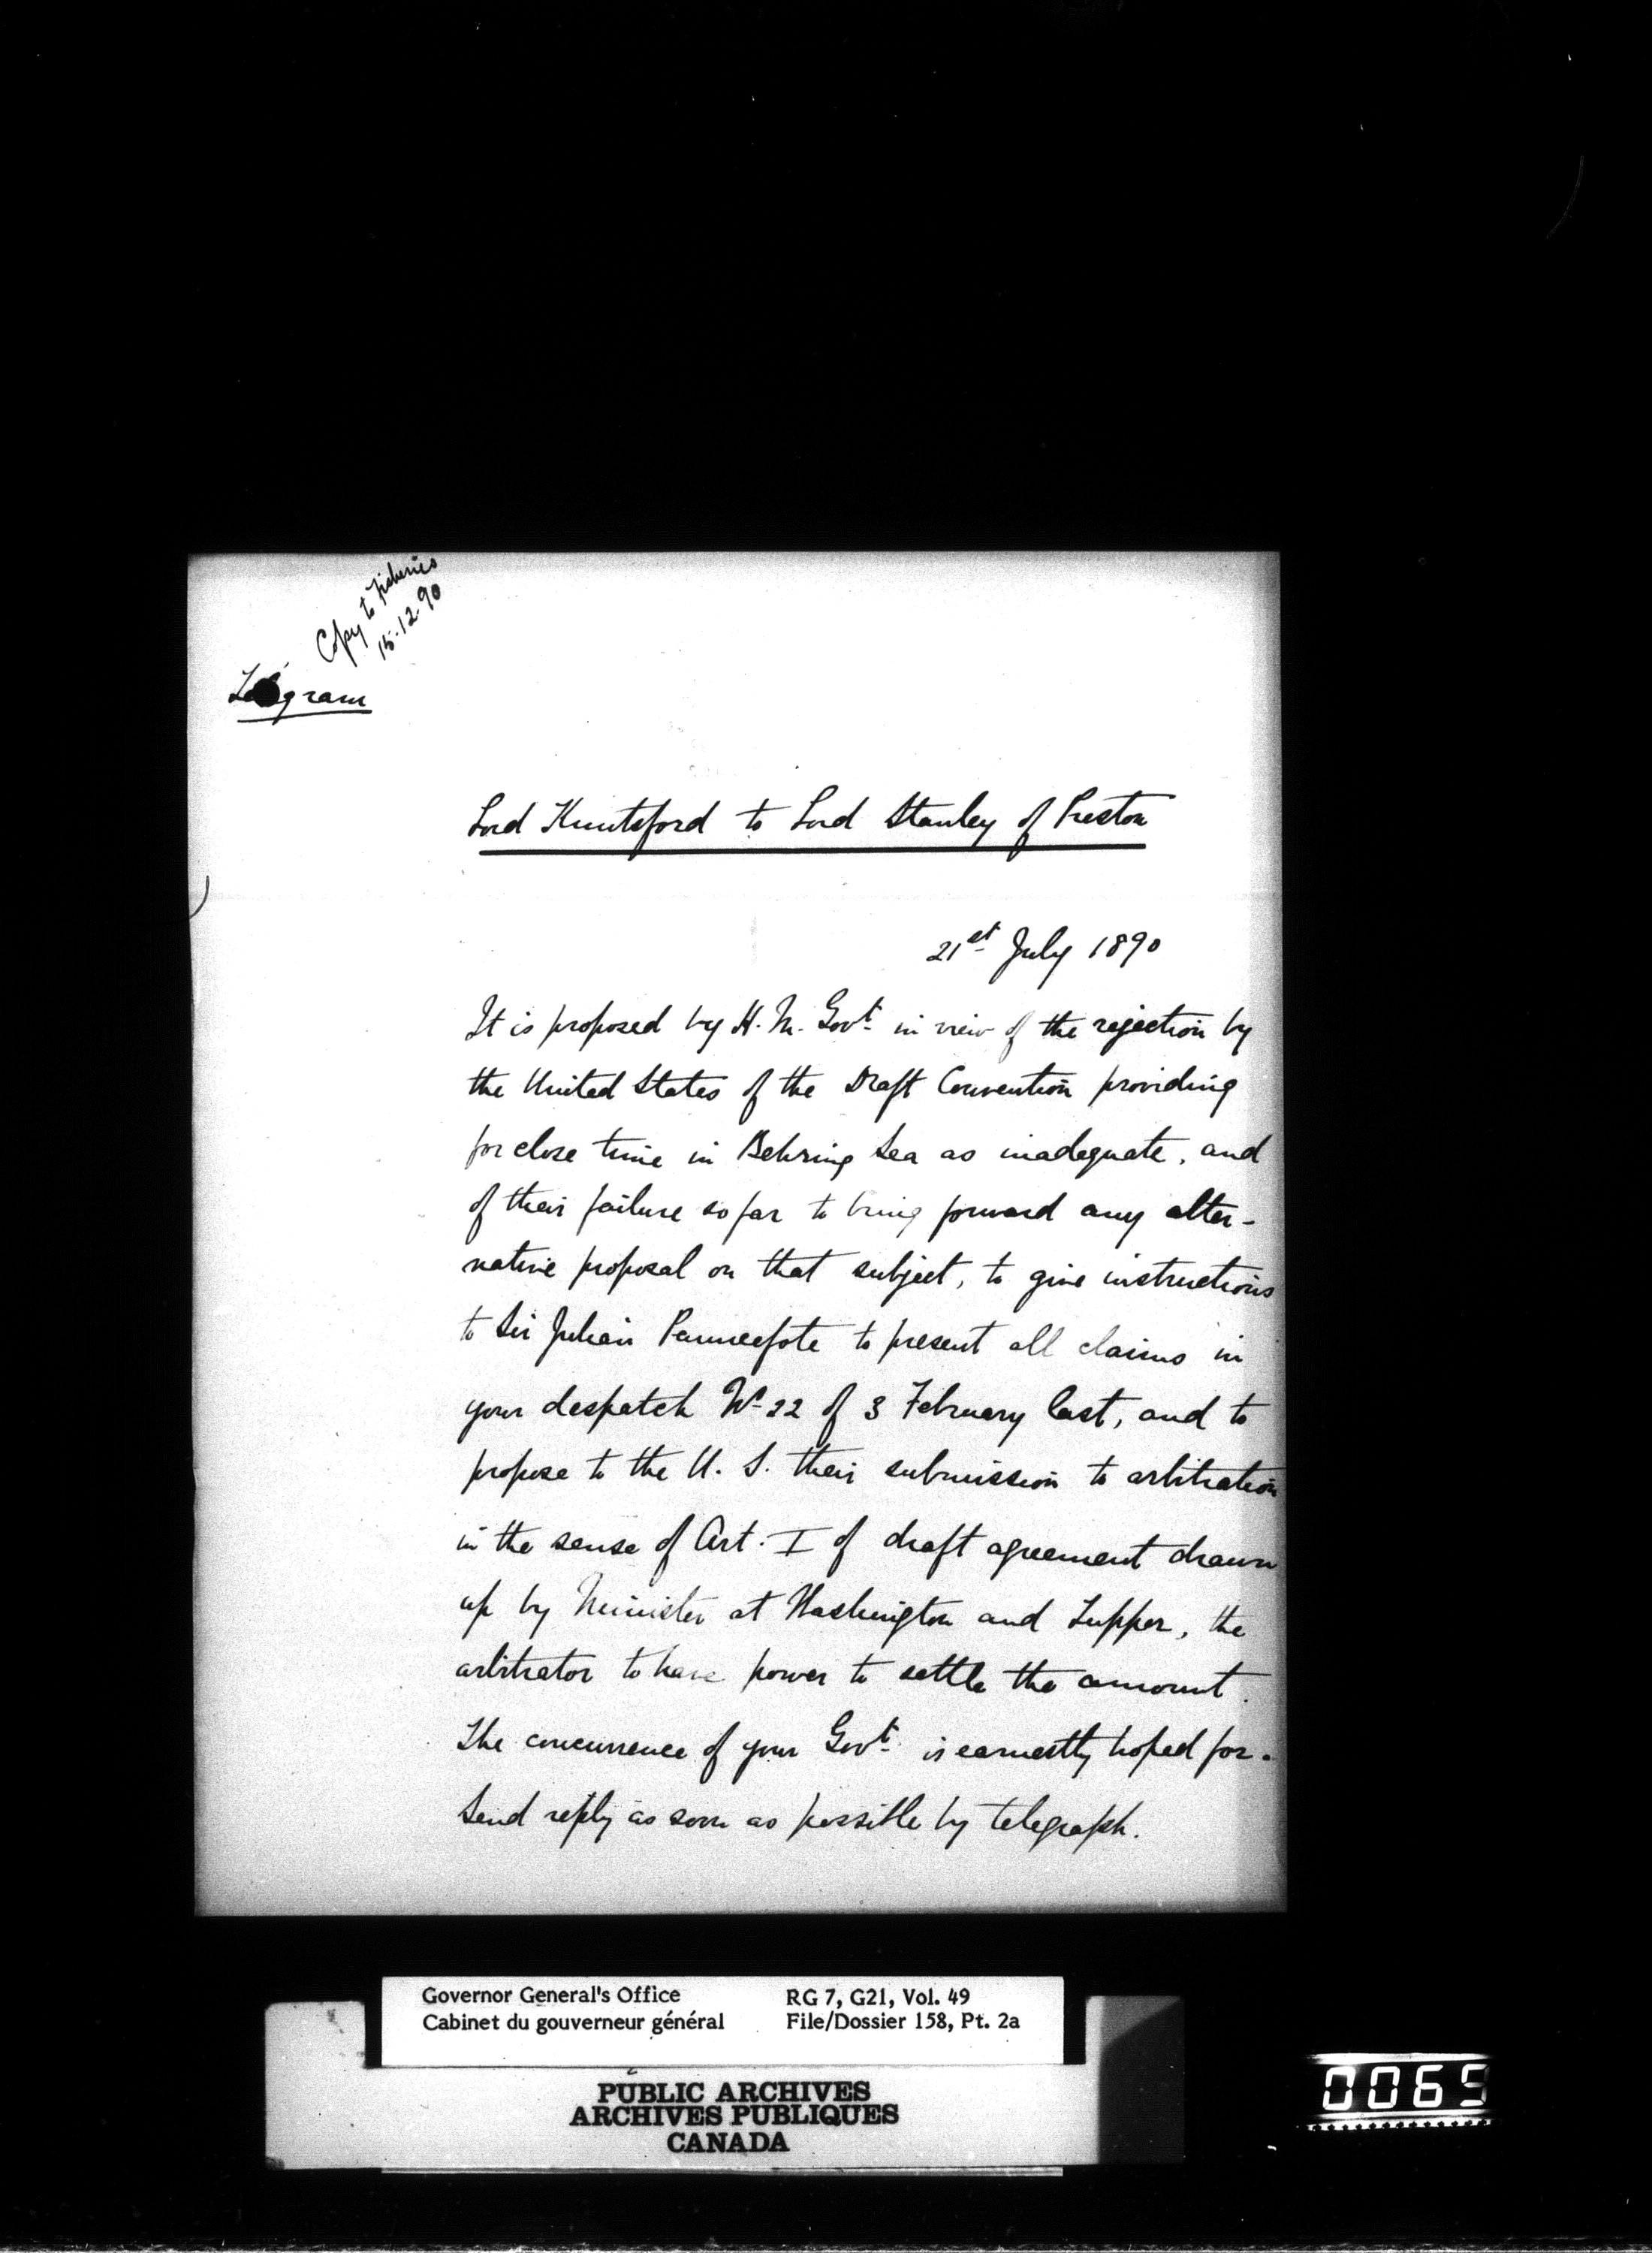 Copy to Fisheries
15.12.90
Telegram
Lord Knutsford to Lord Stanley of Preston
21st July 1890
It is proposed by H. M. Govt. in view of the rejection by
the United States of the Draft Convention providing
for close time in Behring Sea as inadequate, and
of their failure so far to bring forward any alter-
native proposal on that subject, to give instructions
to Sir Julian Pauncefote to present all claims in
your despatch No 22 of 3 February last, and to
propose to the U. S. their submission to arbitration
in the sense of Art. I of draft agreement drawn
up by Minister at Washington and Tupper, the
arbitrator to have power to settle the amount.
The concurrence of your Govt. is earnestly hoped for.
Send reply as soon as possible by telegraph.
Governor General's Office RG 7, G21, Vol. 49
Cabinet du gouverneur général File/Dossier 158, Pt. 2a
PUBLIC ARCHIVES
ARCHIVES PUBLIQUES
CANADA
0065